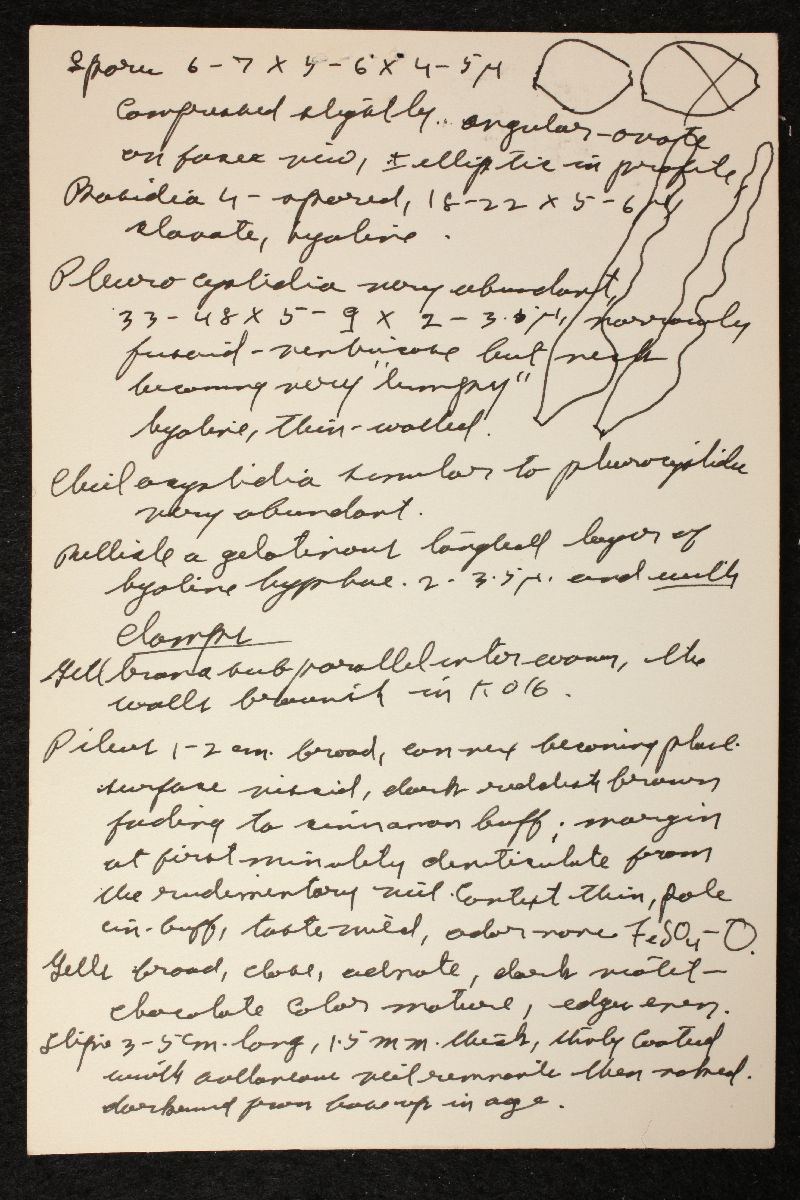 Spores 6-7 X 5-6 X 4-5 µ
compressed slightly.. angular-ovate
on face view, ± elliptic in profile,
Basidia 4-spored, 18-22 X 5-6 µ,
clavate, hyaline.
Pleurocystidia very abundant,
33-48 X 5-9 X 2-3.5 µ, narrowly
fusoid-ventricose but neck
becoming very "lumpy"
hyaline, thin-walled.
Cheilocystidia similar to pleurocystidia
very abundant.
Pellicle a gelatinous layer of
hyaline hyphae. 2-3.5 µ. and with
clamps
Gill trama subparallel interwoven, the
walls brownish in KOH.
Pileus 1-2 cm. broad, convex becoming plane.
surface viscid, dark reddish brown
fading to cinnamon buff; margin
at first minutely denticulate from
the rudimentary veil. Context thin, pale
cin-buff, taste mild, odor none FeSO4-O.
Gills broad, close, adnate, dark violet-
chocolate color mature, edges even.
Stipe 3-5 cm. long, 1.5 mm. thick, thinly coated
with veil remnants then naked.
darkened from base up in age.